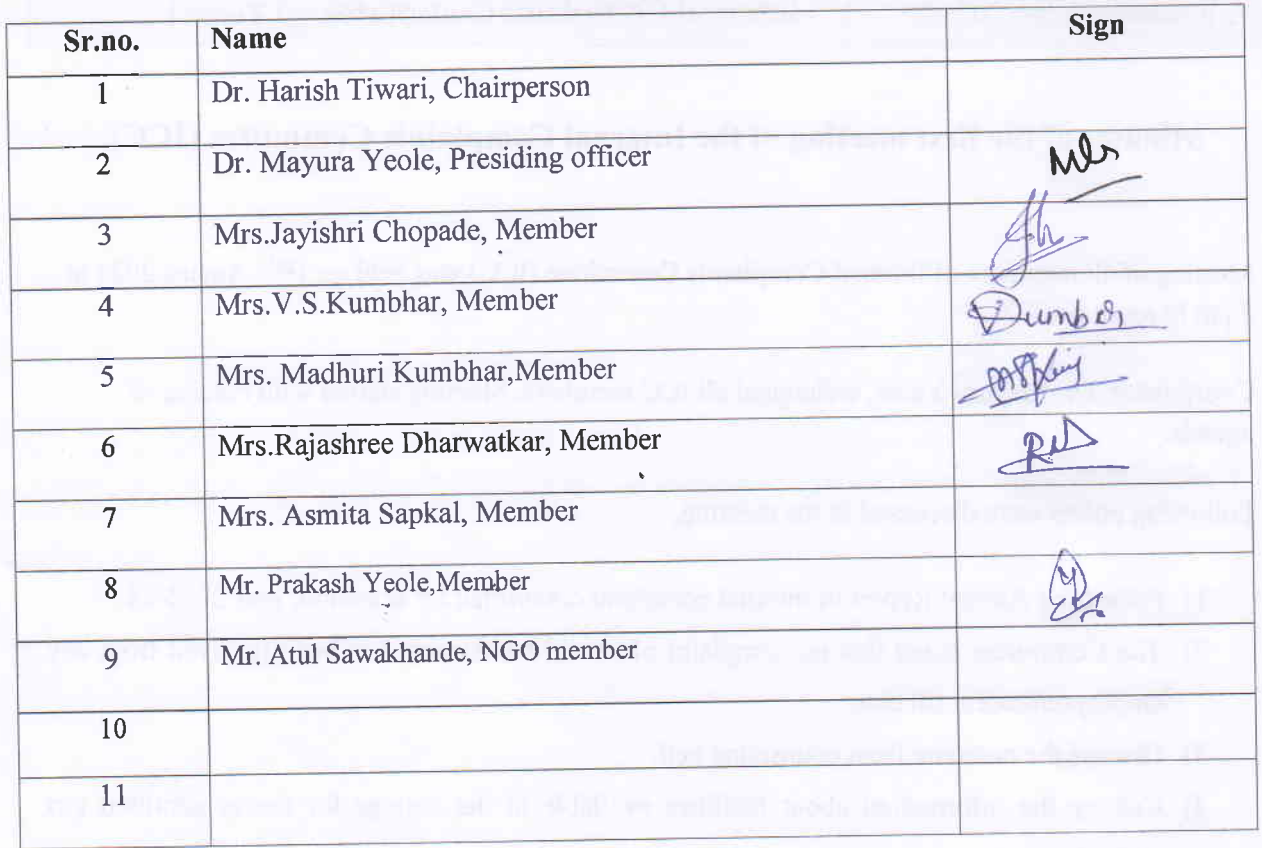 Sr.no. Name Sign
1 Dr. Harish Tiwari, Chairperson
2 Dr. Mayura Yeole, Presiding officer
3 Mrs.Jayishri Chopade, Member
4 Mrs.V.S.Kumbhar, Member
5 Mrs. Madhuri Kumbhar,Member
6 Mrs.Rajashree Dharwatkar, Member
7 Mrs. Asmita Sapkal, Member
8 Mr. Prakash Yeole,Member
9 Mr. Atul Sawakhande, NGO member
10
11